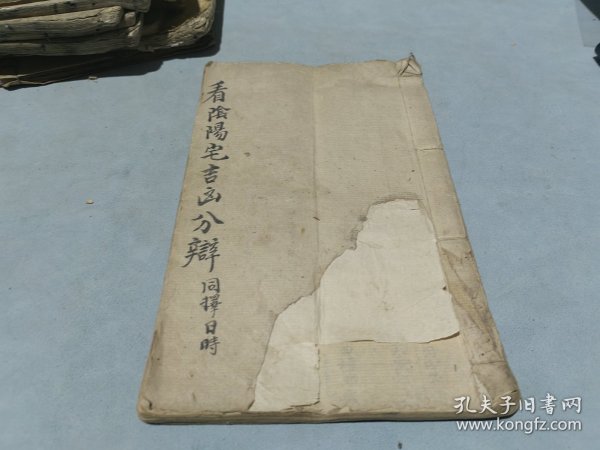 看陰陽宅吉凶分辯
同擇日時
孔夫子旧书网
www.kongfz.com